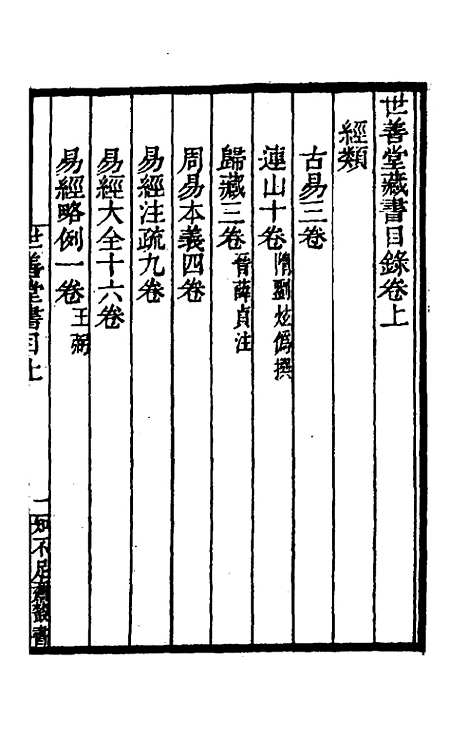 世善堂藏書目錄卷上
經類
古易三卷
連山十卷 隋劉炫僞撰
歸藏三卷 晉薛貞注
周易本義四卷
易經注疏九卷
易經大全十六卷
易經略例一卷 王弼
世善堂書目上 一 知不足齋叢書